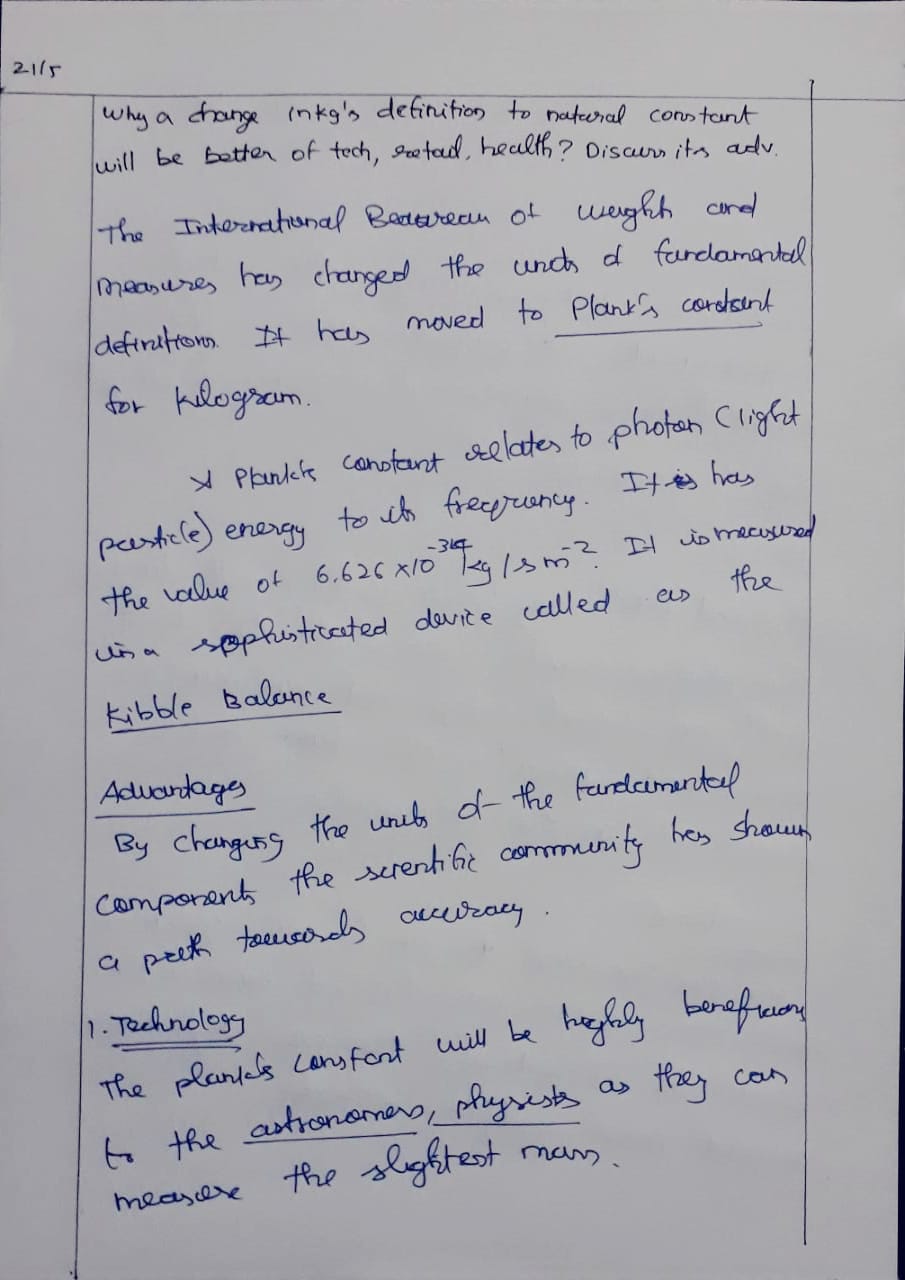 21/5
Why a change in kg's definition to natural constant
will be better of tech, retail, health? Discuss its adv.
The International Beaureau of weight and
measures has changed the units of fundamental
definitions. It has moved to Plank's constant
for kilogram.
* Planck's constant relates to photon (light
particle) energy to its frequency. It has
the value of 6.626 x10⁻³⁴ kg / s m⁻². It is measured
via sophisticated device called as the
Kibble Balance
Advantages
By changing the units of the fundamental
components the scientific community has shown
a path towards accuracy.
1. Technology
The planck's constant will be highly
to the astronomers, physists as they can
measure the slightest mass.